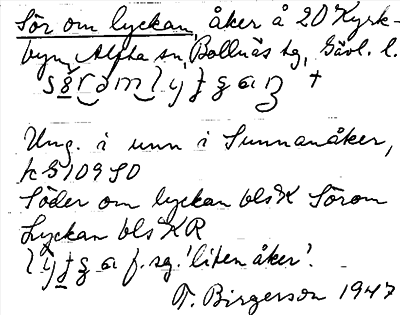 Sör om lyckan, åker å 20 Kyrk-
byn, Alfta sn, Bollnäs tg, Gävl. l.
Ung. i unn i Sunnanåker,
k 5109 SO
Söder om lyckan bls K Sörom
Lyckan bls KR
f. sg. 'liten åker'.
T. Birgerson 1947